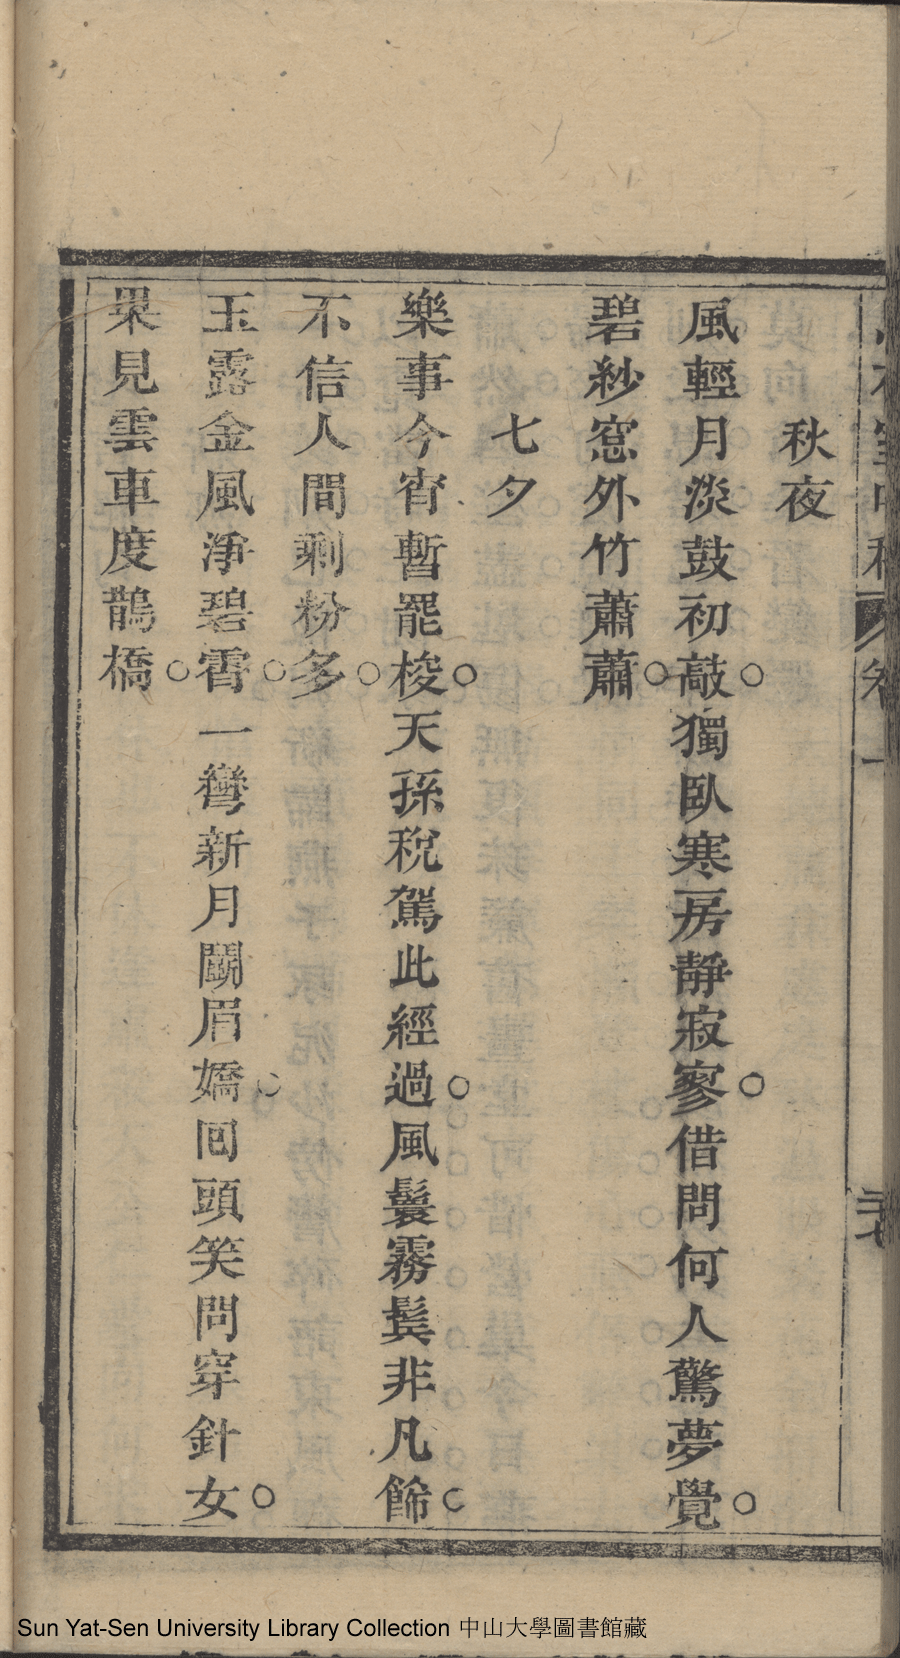 秋夜
風輕月淡鼓初敲○獨臥寒房靜寂寥○借問何人驚夢覺○
碧紗窓外竹蕭蕭○
七夕
樂事今宵暫罷梭○天孫稅駕此經過○風鬟霧鬂非凡餙○
不信人間剩粉多○
玉露金風淨碧霄○一彎新月鬭眉嬌○回頭笑問穿針女○
果見雲車度鵲橋○
Sun Yat-Sen University Library Collection 中山大學圖書館藏